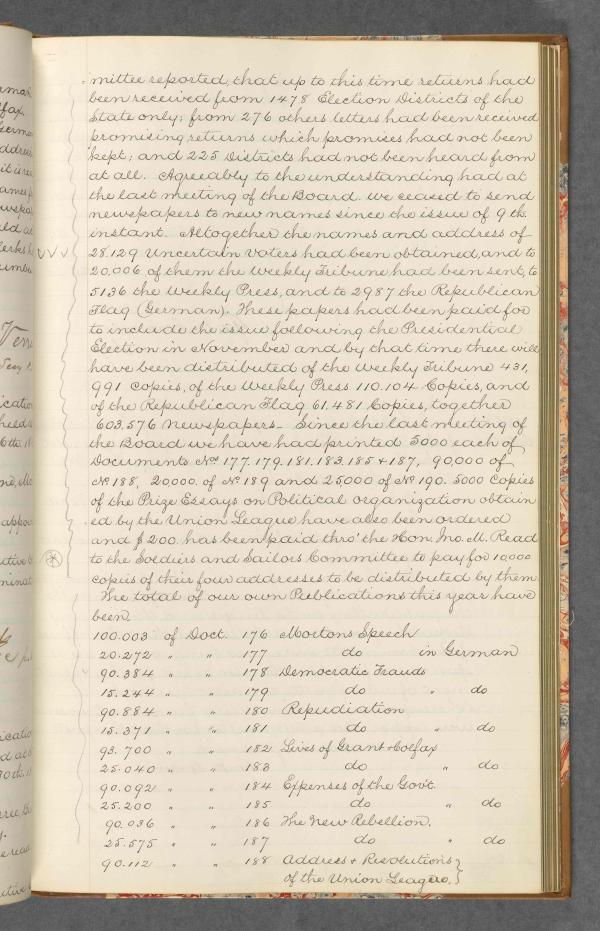 mittee reported, that up to this time returns had
been received from 1478 Election Districts of the
State only; from 276 others letters had been received
promising returns which promises had not been
kept; and 225 Districts had not been heard from
at all. Agreeably to the understanding had at
the last meeting of the Board. we ceased to send
newspapers to new names since the issue of 9th.
instant. Altogether the names and address of
28.129 Uncertain Voters had been obtained, and to
20,006 of them the Weekly Tribune had been sent, to
5136 the Weekly Press, and to 2987 the Republican
Flag (German). These papers had been paid for
to include the issue following the Presidential
Election in November and by that time there will
have been distributed of the Weekly Tribune 431,
991 Copies, of the Weekly Press 110.104 Copies, and
of the Republican Flag 61,481 Copies, together
603.576 newspapers_ Since the last meeting of
the Board we have had printed 5000 each of
Documents Nos. 177.179.181.183.185 + 187, 90,000 of
No 188, 20000. of No. 189 and 25000 of No 190. 5000 Copies
of the Prize Essays on Political organization obtain
ed by the Union League have also been ordered
and $200. has been paid thro' the Hon. Jno. M. Read
to the Soldiers and Sailors Committee to pay for 10,000
copies of their four addresses to be distributed by them.
The total of our own Publications this year have
been.
100.003 of Doct. 176 Mortons Speech
20.272 " " 177 do in German
90.384 " " 178 Democratic Frauds
15.244 " " 179 do " do
90.884 " " 180 Repudiation
15.371 " " 181 do " do
93.700 " " 182 Lives of Grant + Colfax
25.040 " " 183 do " do
90.092 " " 184 Expenses of the Gov't.
25.200 " " 185 do " do
90.036 " " 186 The New Rebellion.
25.575 " " 187 do " do
90.112 " " 188 Address + Resolutions }
of the Union League. }